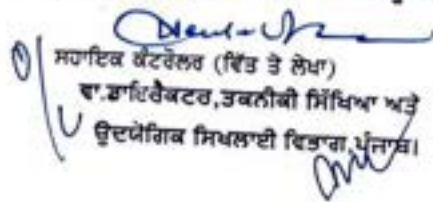 ਸਹਾਇਕ ਕੰਟਰੋਲਰ (ਵਿੱਤ ਤੇ ਲੇਖਾ)
ਵਾ.ਡਾਇਰੈਕਟਰ,ਤਕਨੀਕੀ ਸਿੱਖਿਆ ਅਤੇ
ਉਦਯੋਗਿਕ ਸਿਖਲਾਈ ਵਿਭਾਗ,ਪੰਜਾਬ।